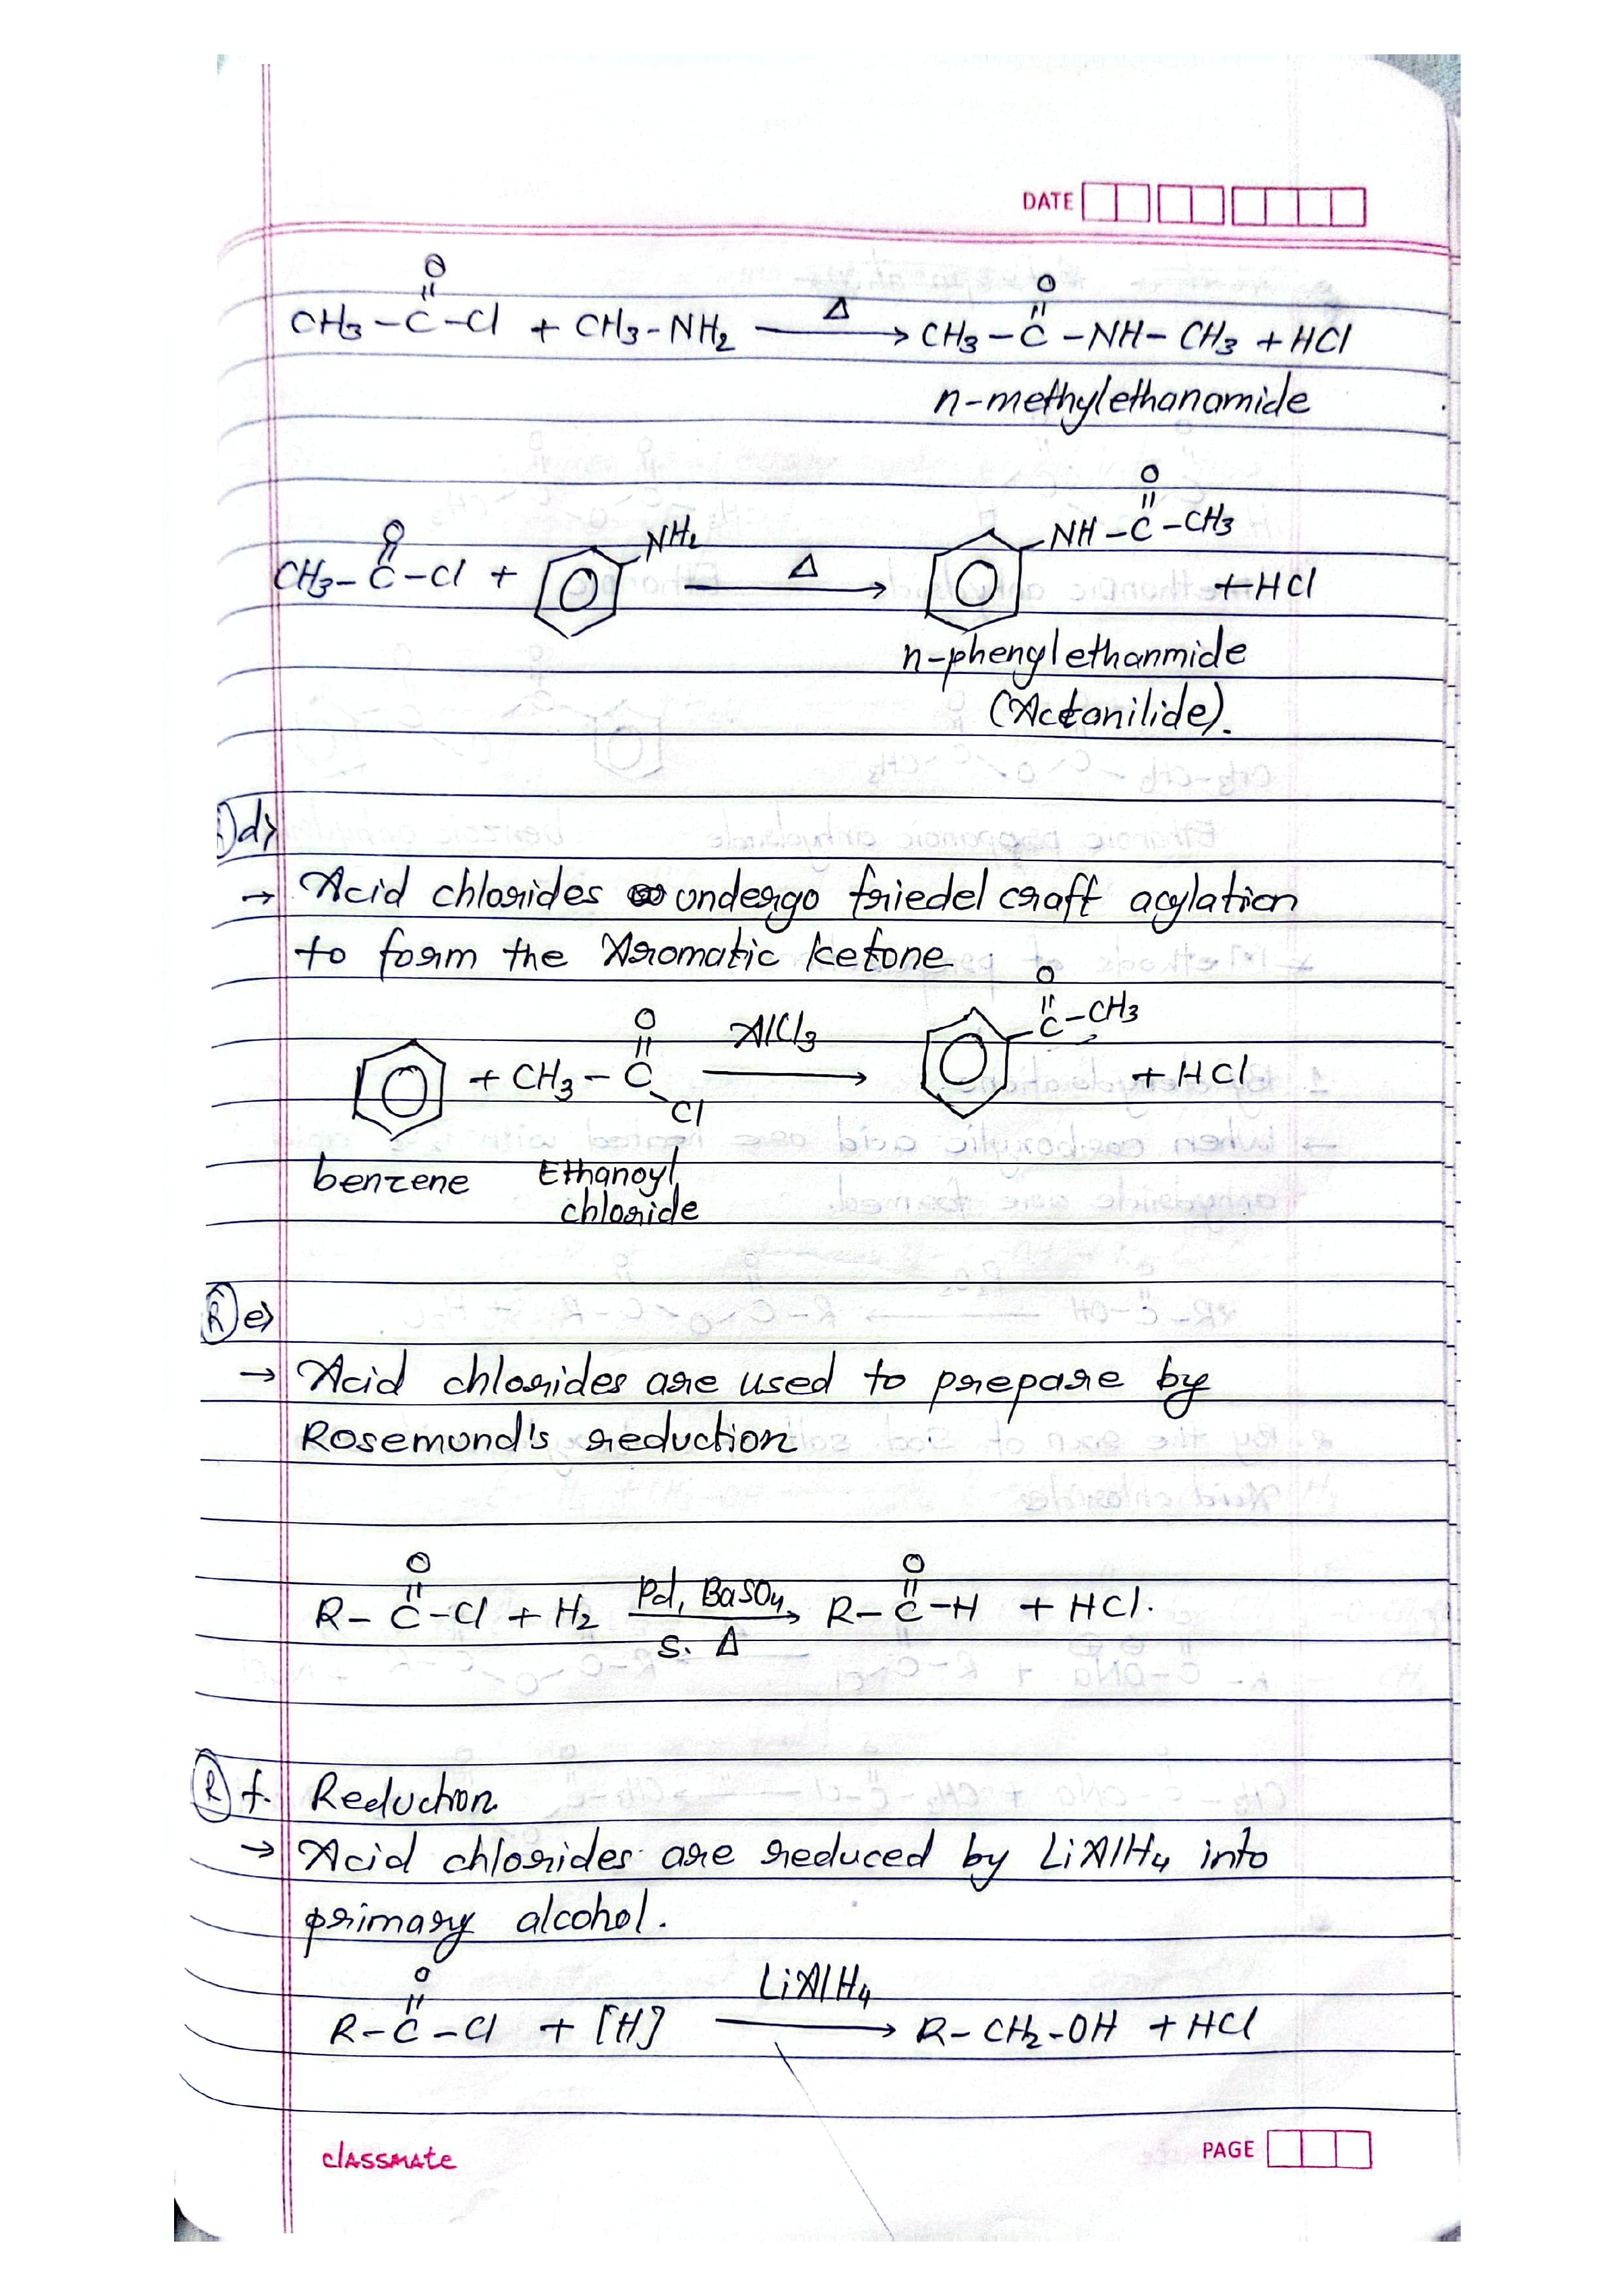 DATE
O
CH3-C-Cl + CH3-NH2 —Δ→ CH3-C-NH-CH3 + HCl
n-methylethanamide
O
CH3-C-Cl + NH2 —Δ→ NH-C-CH3 + HCl
n-phenylethanmide
(Acetanilide).
d>
→ Acid chlorides undergo friedel craft acylation
to form the Aromatic ketone
+ CH3-C Cl —AlCl3→ C-CH3 + HCl
benzene Ethanoyl
chloride
R e>
→ Acid chlorides are used to prepare by
Rosemund's reduction
O O
R-C-Cl + H2 —Pd, BaSO4→ R-C-H + HCl.
S. Δ
R f. Reduction
→ Acid chlorides are reduced by LiAlH4 into
primary alcohol.
O LiAlH4
R-C-Cl + [H] → R-CH2-OH + HCl
classmate PAGE